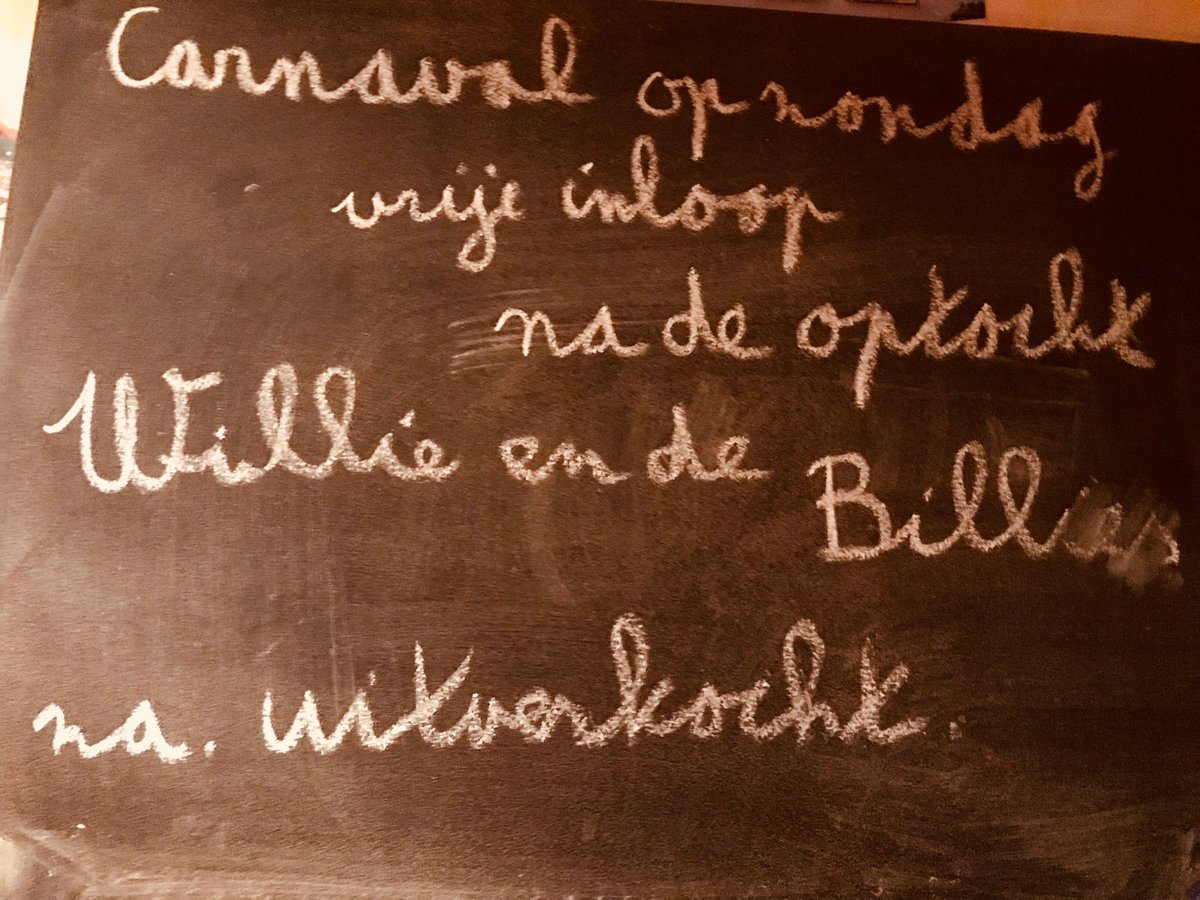 Carnaval op nondag
vrije inloop
na de optocht
Willie en de
na. uitverkocht.